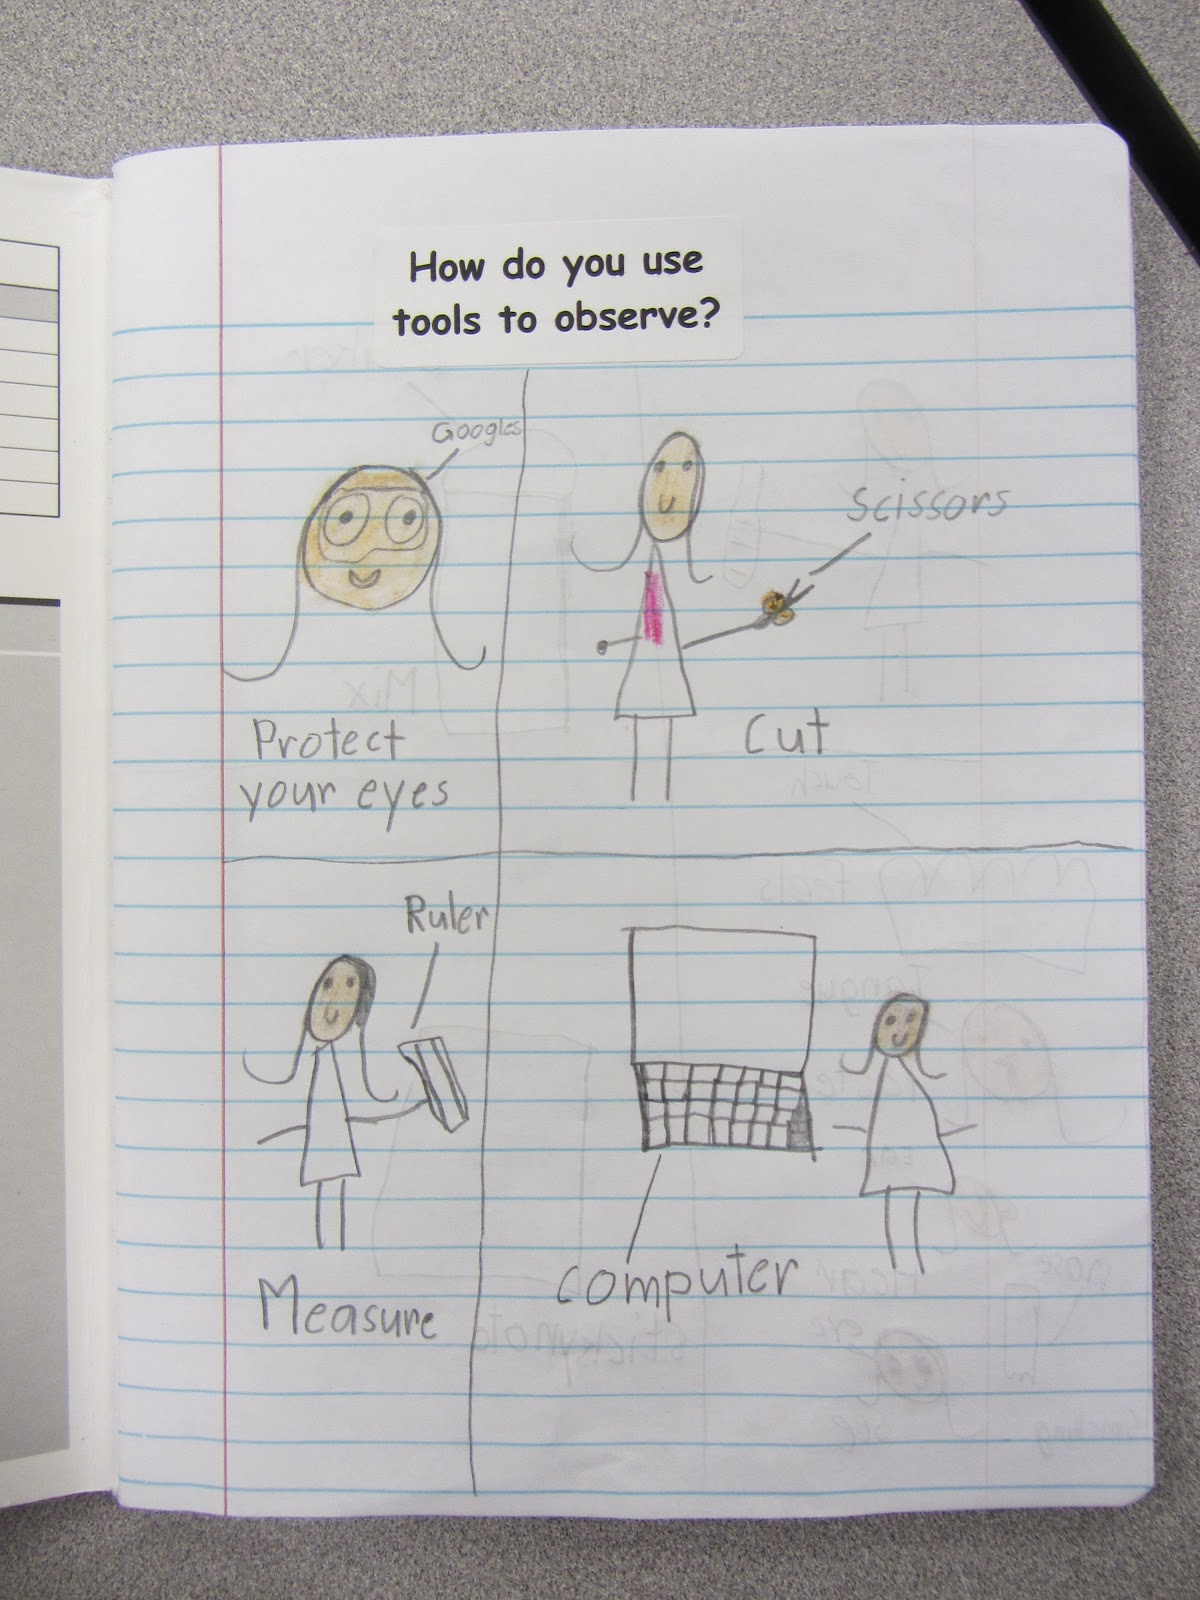 How do you use
tools to observe?
Googles
Scissors
Protect
your eyes
Cut
Ruler
Measure
Computer